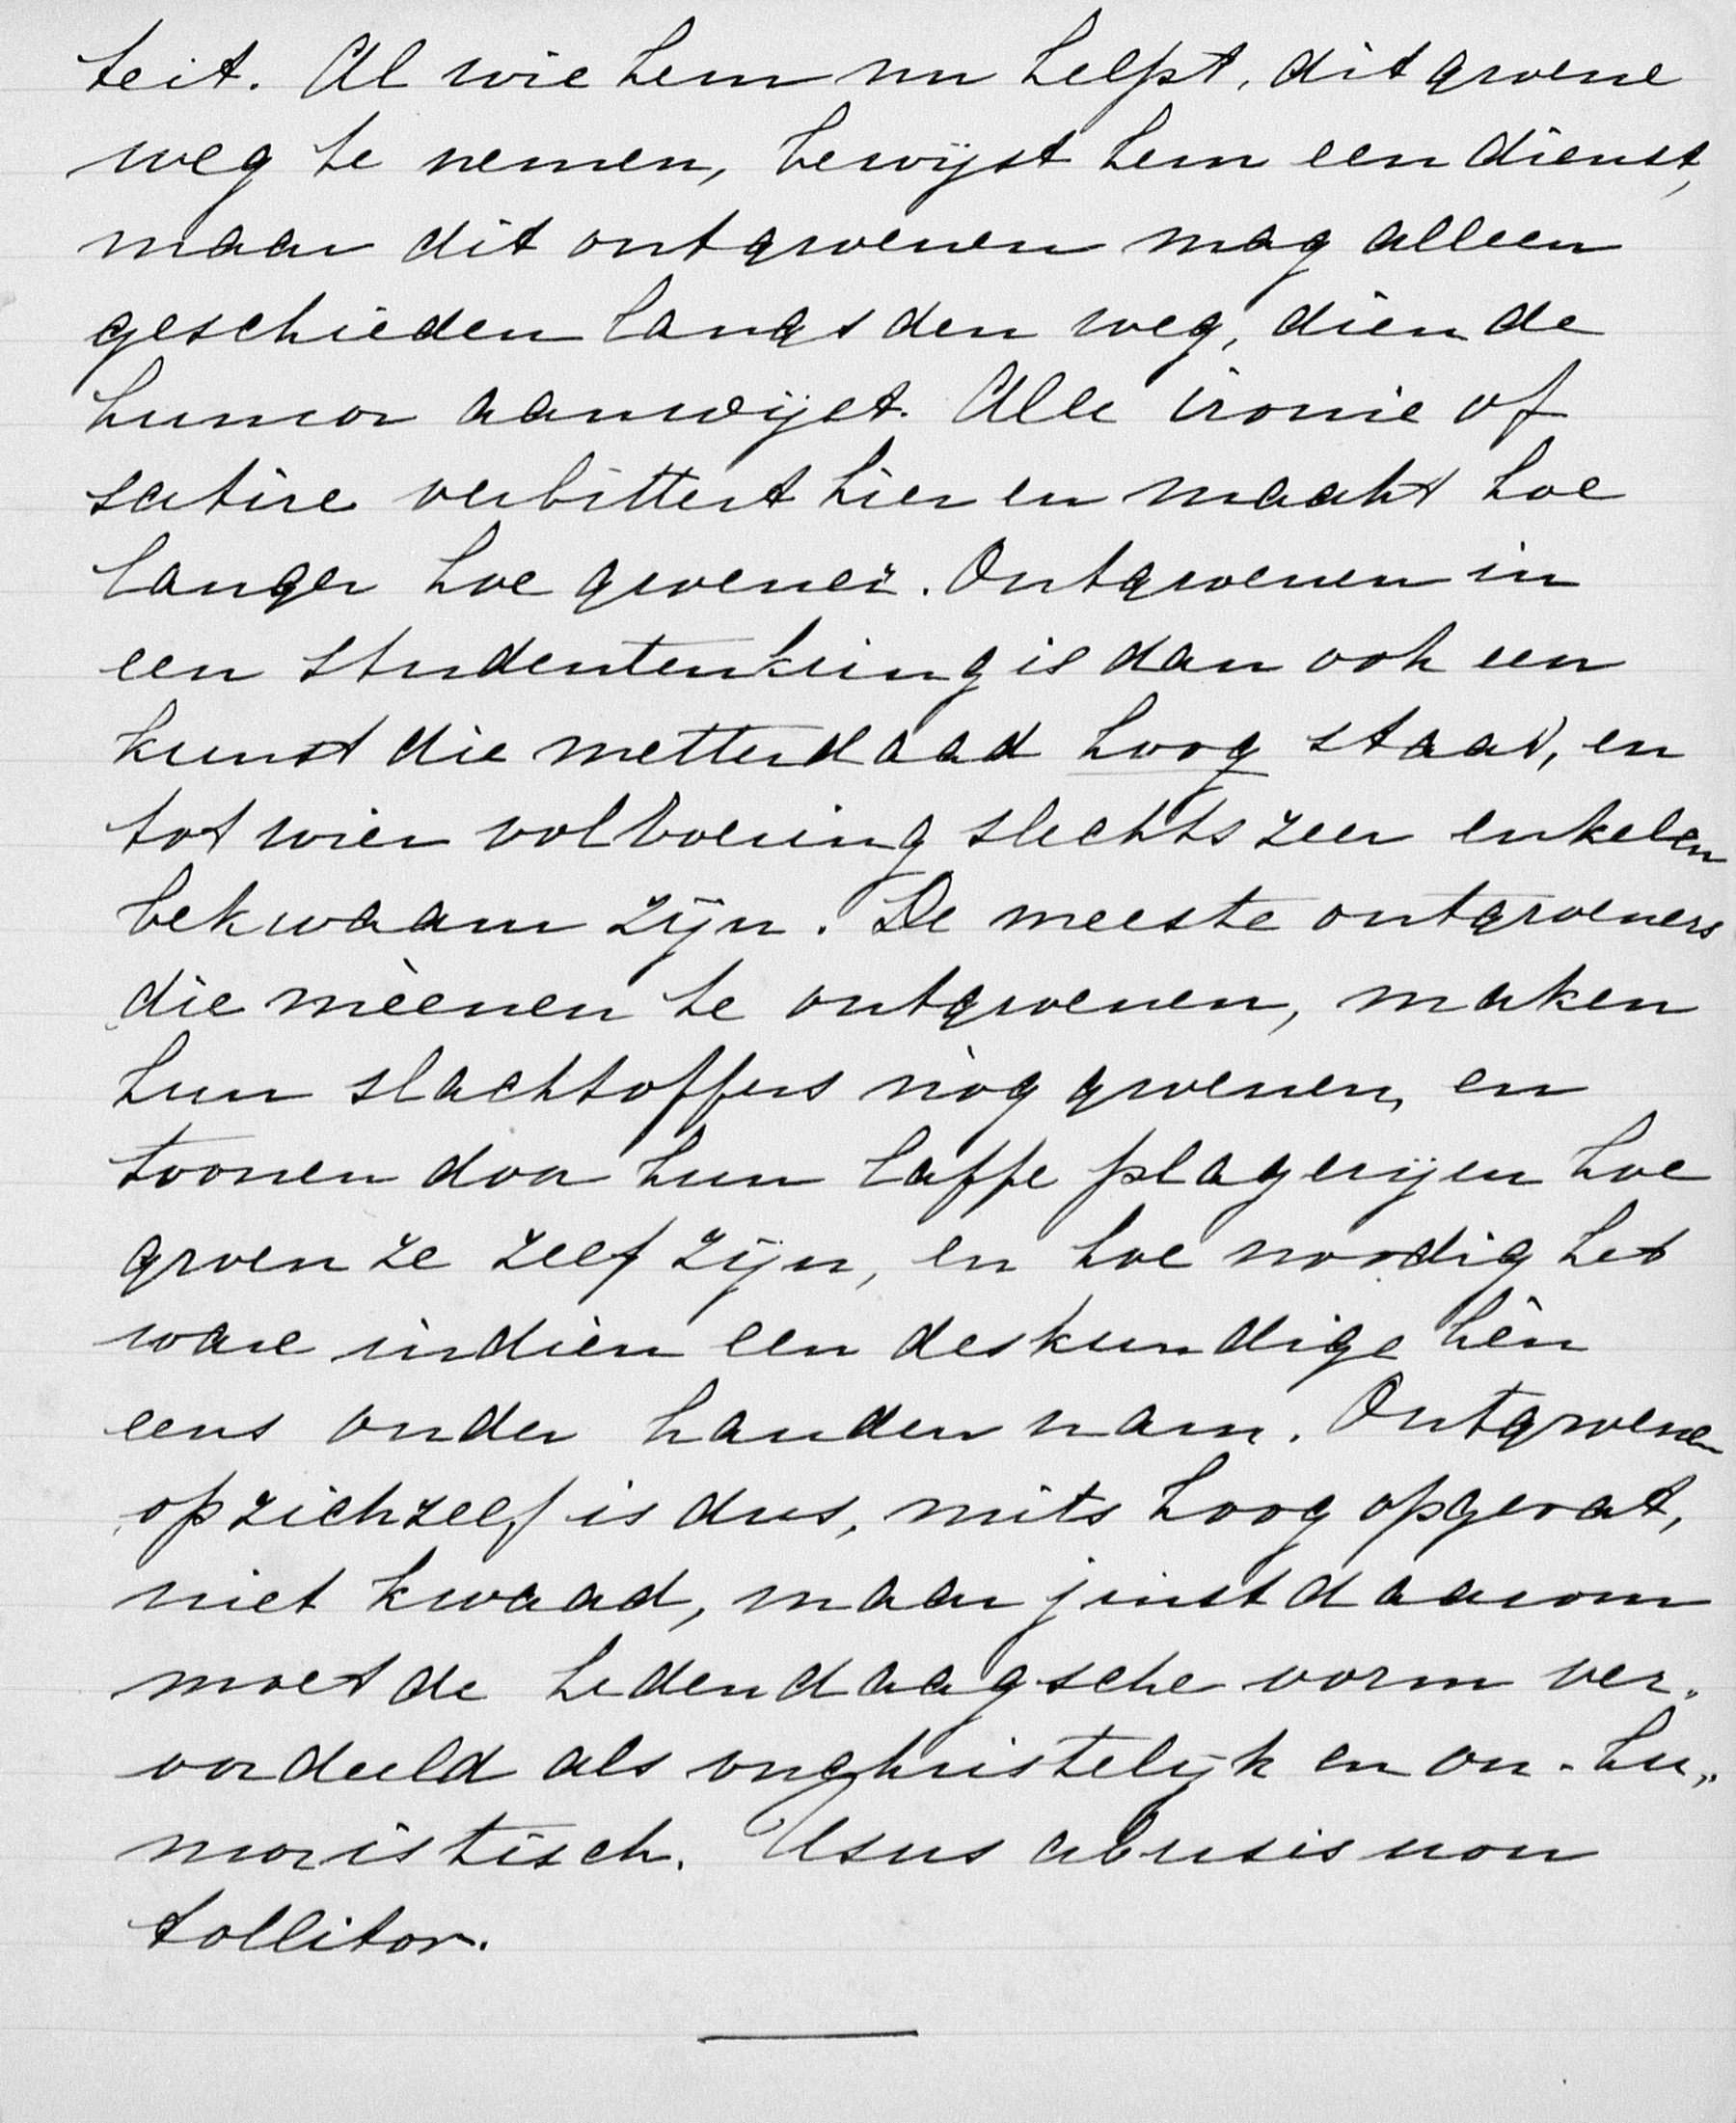 teit. Al wie hem nu helpt, dit groene
weg te nemen, bewijst hem een dienst,
maar dit ontgroenen mag alleen
geschieden langs den weg, dien de
humor aanwijst. Alle ironie of
satire verbittert hier en maakt hoe
langer hoe groener. Ontgroenen in
een studentenkring is dan ook een
kunst die metterdaad hoog staat, en
tot wier volvoering slechts zeer enkelen
bekwaam zijn. De meeste ontgroeners
die mèenen te ontgroenen, maken
hun slachtoffers nòg groener, en
toonen door hun laffe plagerijen hoe
groen ze zelf zijn, en hoe noodig het
ware indien een deskundige hèn
eens onder handen nam. Ontgroenen
op zichzelf is dus, mits hoog opgevat,
niet kwaad, maar juist daarom
moet de hedendaagsche vorm ver„
oordeeld als onchristelijk en on-hu„
moristisch. Usus abusis non
tollitor.